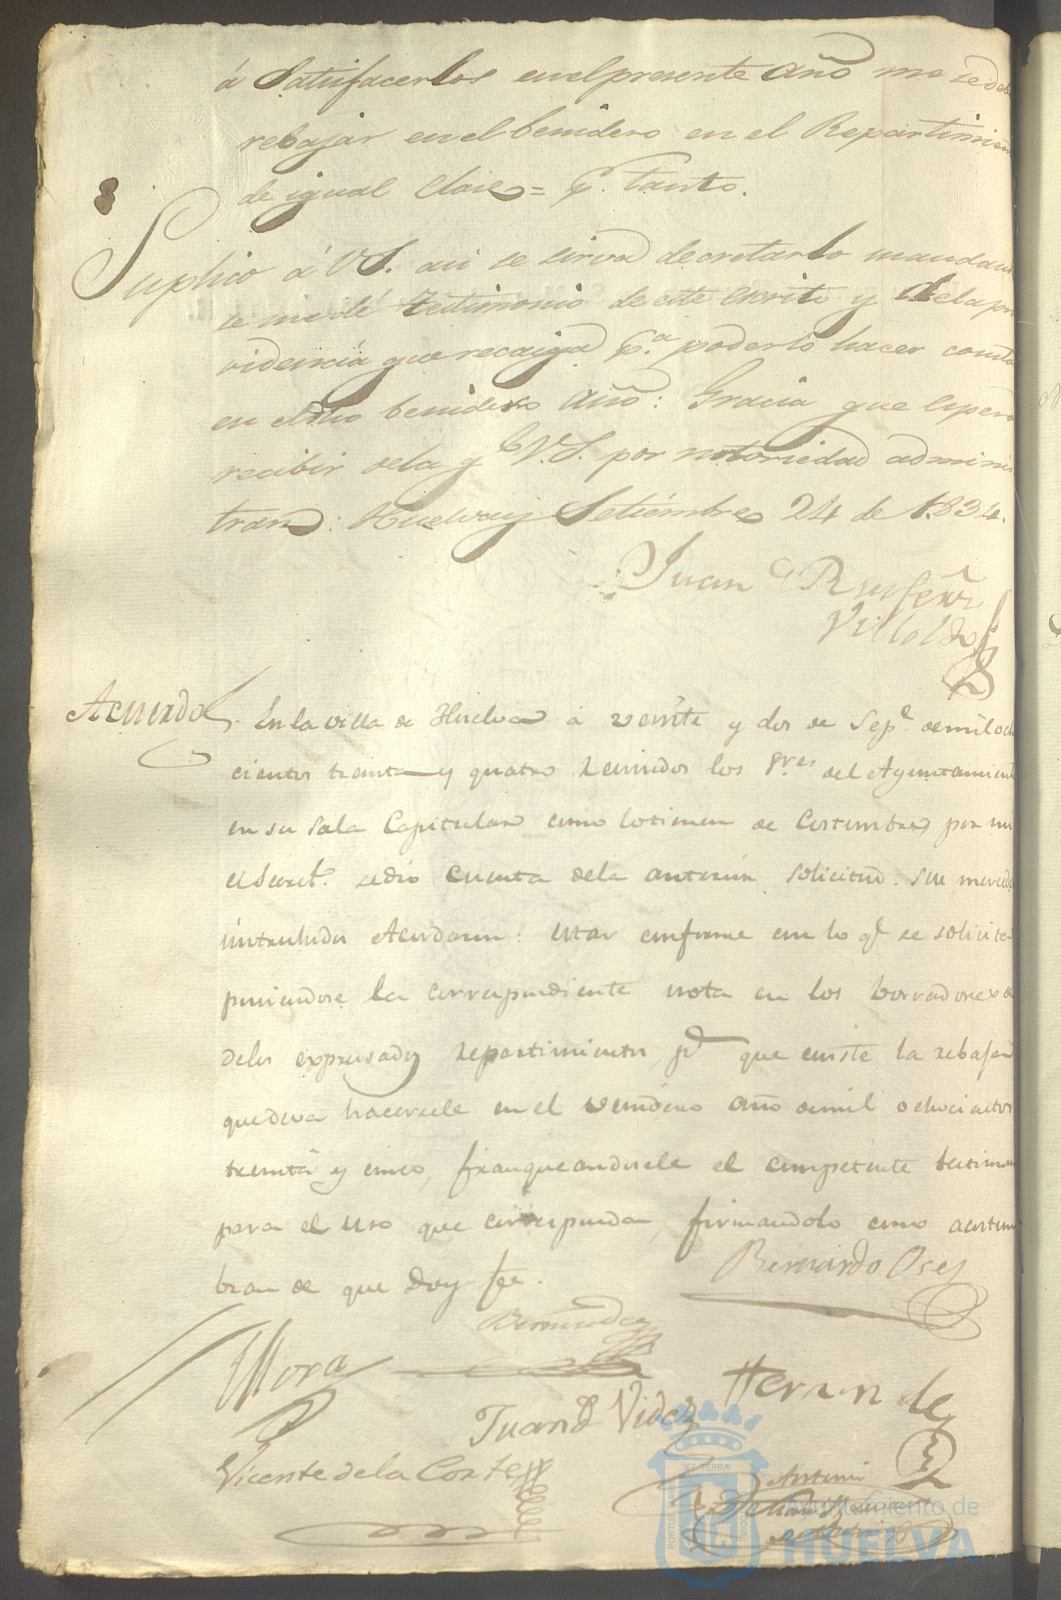 á Satisfacerlos en el presente año me se debe
rebajar en el benidero en el Repartimien
de igual clase = p.r tanto.
Suplico á V.S. asi se sirva decretarlo mandan
se me dé testimonio de este escrito y de la pro
videncia que recaiga p.a poderlo hacer consta
en el dho benidero año: Gracia que espero
recibir de la q.e V.S. por notoriedad adminis
tran: Huelva y Setiémbre 24 de 1834.
Juan
Villoldo
Acuerdo. En la villa de Huelva á veinte y dos de Sep.e de mil och
cientos treinta y quatro reunidos los S.res del Ayuntamient
en su Sala Capitular como lo tienen de Costumbre, por mi
el Secret.o se dió cuenta de la anterior solicitud. Sus merced
intelixidos Acordaron: estar conforme con lo q.e se solicita
poniendose la correspondiente nota en los borradores
de los expresados repartimientos, p.a que conste la rebaja
que deva hacersele en el venidero año de mil ochocientos
treinta y cinco, franqueandosele el competente testimo
para el uso que corresponda, firmandolo como acostum
bran de que Doy fee.
Bernardo Oses
Bermudez
Mora
Hernandez
Juan Videz
Vicente de la Corte
Antonio
PORTUS MARIS ET TERRÆ CUSTODIA
Ayuntamiento de
HUELVA